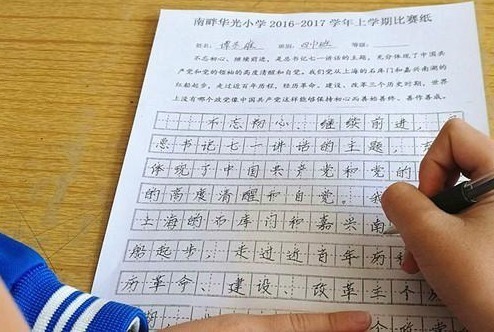 南畔华光小学2016-2017学年上学期比赛纸
姓名: 班别: 四 班 等级:
不忘初心、继续前进,是总书记七一讲话的主题,充分体现了中国共
产党和党的领袖的高度清醒和自觉。我们党从上海的石库门和嘉兴南湖的
红船起步,走过近百年历程,经历革命、建设、改革三个历史时期,世界
上没有哪个政党像中国共产党这样能够保持初心而善始善终、善作善成。
不忘初心、继续前进,
总书记七一讲话的主题,充
体现了中国共产党和党的
的高度清醒和自觉。我
上海的石库门和嘉兴南
船起步,走过近百年历
历革命、建设、改革三个